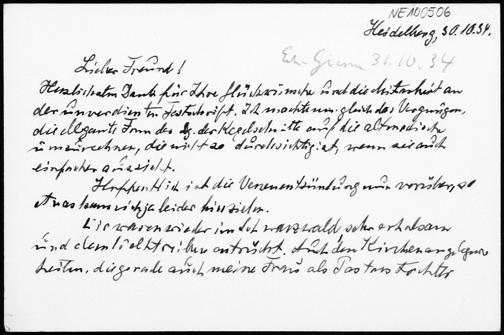 NEAD0506
Heidelberg, 30.10.34.
31.10.34
Lieber Freund!
Herzlichsten Dank für Ihre Glückwünsche und die Mitarbeit an
der unverdienten Festschrift. Ich machte mir gleich das Vergnügen,
die elegante Form der Kegelschnitte auf die altmodische
umzurechnen, die nicht so durchsichtig ist, wenn sie auch
einfacher aussieht.
Hoffentlich ist die Venenentzündung nun vorüber, so
etwas kann sich ja leider hinziehen.
Wir waren wieder im Schwarzwald, sehr erholsam
und dem
entrückt. Auch den Kirchenangelegen-
heiten, die gerade auch meine Frau als Pastorstochter